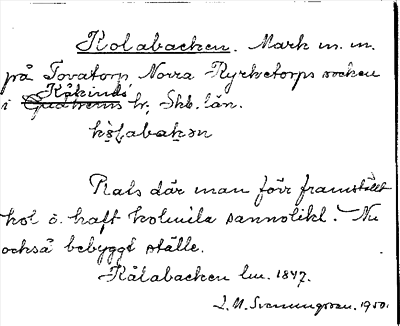 Kolabacken. Mark m. m.
på Tovatorp Norra Kyrketorps socken
Kåkinds
i Gudhems hr, Skb. län.
kɷ̀ḷabakən
Plats där man förr framställt
kol o. haft kolmila sannolikt. Nu
också bebyggt ställe.
Kålabacken lm. 1847.
1950.